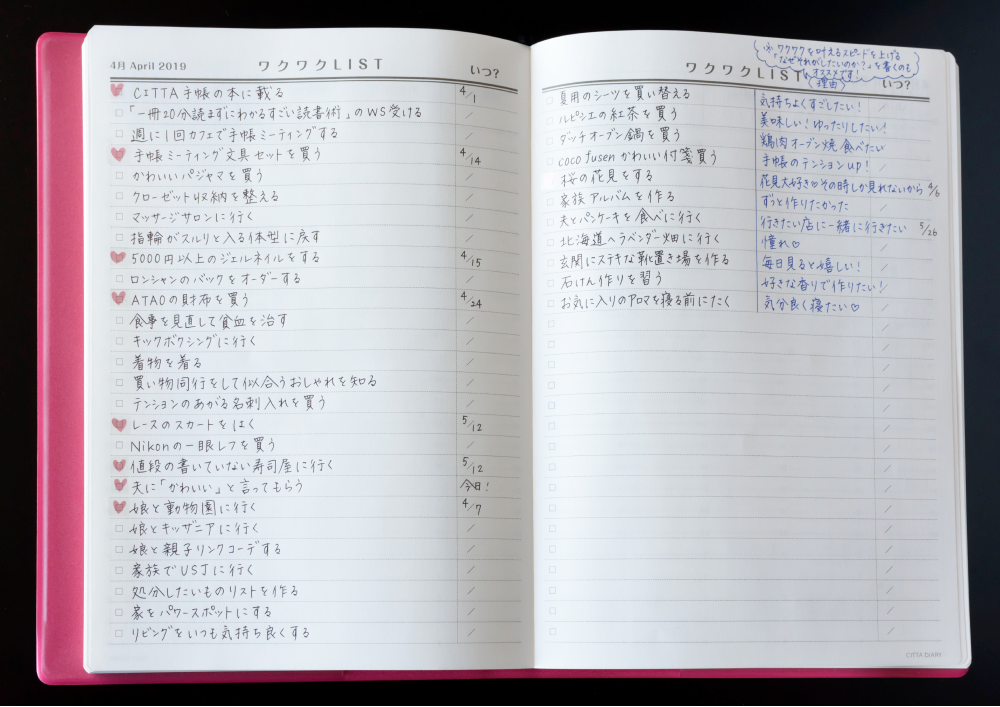 4月 April 2019
ワクワクLIST
いつ?
CITTA手帳の本に載る 4/1
「一冊20分読まずにわかるすごい読書術」のWS受ける /
週に1回カフェで手帳ミーティングする /
手帳ミーティング文具セットを買う 4/14
かわいいパジャマを買う /
クローゼット収納を整える /
マッサージサロンに行く /
指輪がスルリと入る体型に戻す /
5000円以上のジェルネイルをする 4/15
ロンシャンのバックをオーダーする /
ATAOの財布を買う 4/24
食事を見直して貧血を治す /
キックボクシングに行く /
着物を着る /
買い物同行をして似合うおしゃれを知る /
テンションのあがる名刺入れを買う /
レースのスカートをはく 5/12
Nikonの一眼レフを買う /
値段の書いていない寿司屋に行く 5/12
夫に「かわいい」と言ってもらう 今日!
娘と動物園に行く 4/7
娘とキッザニアに行く /
娘と親子リンクコーデする /
家族でUSJに行く /
処分したいものリストを作る /
家をパワースポットにする /
リビングをいつも気持ち良くする /
※ワクワクを叶えるスピードを上げる
「なぜそれがしたいのか?」を書くのも
オススメです!
(理由)
ワクワクLIST
いつ?
夏用のシーツを買い替える 気持ちよくすごしたい! /
ルピシエの紅茶を買う 美味しい!ゆったりしたい! /
ダッチオーブン鍋を買う 鶏肉オーブン焼食べたい /
coco fusen かわいい付箋買う 手帳のテンションup! /
桜の花見をする 花見大好き♡その時しか見れないから 4/6
家族アルバムを作る ずっと作りたかった /
夫とパンケーキを食べに行く 行きたい店に一緒に行きたい 5/26
北海道へラベンダー畑に行く 憧れ♡ /
玄関にステキな靴置き場を作る 毎日見ると嬉しい! /
石けん作りを習う 好きな香りで作りたい! /
お気に入りのアロマを寝る前にたく 気分良く寝たい♡ /
CITTA DIARY